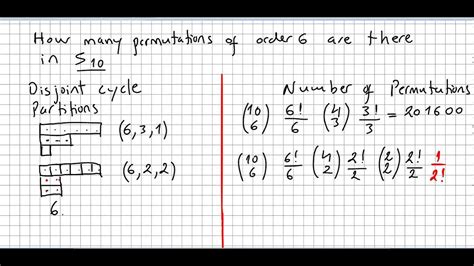 How many permutations of order 6 are there
in S_10
Disjoint cycle
Partitions
Number of Permutations
(6,3,1)
(10 6) 6!/6 (4 3) 3!/3 = 201600
(6,2,2)
(10 6) 6!/6 (4 2) 2!/2 (2 2) 2!/2 1/2!
6